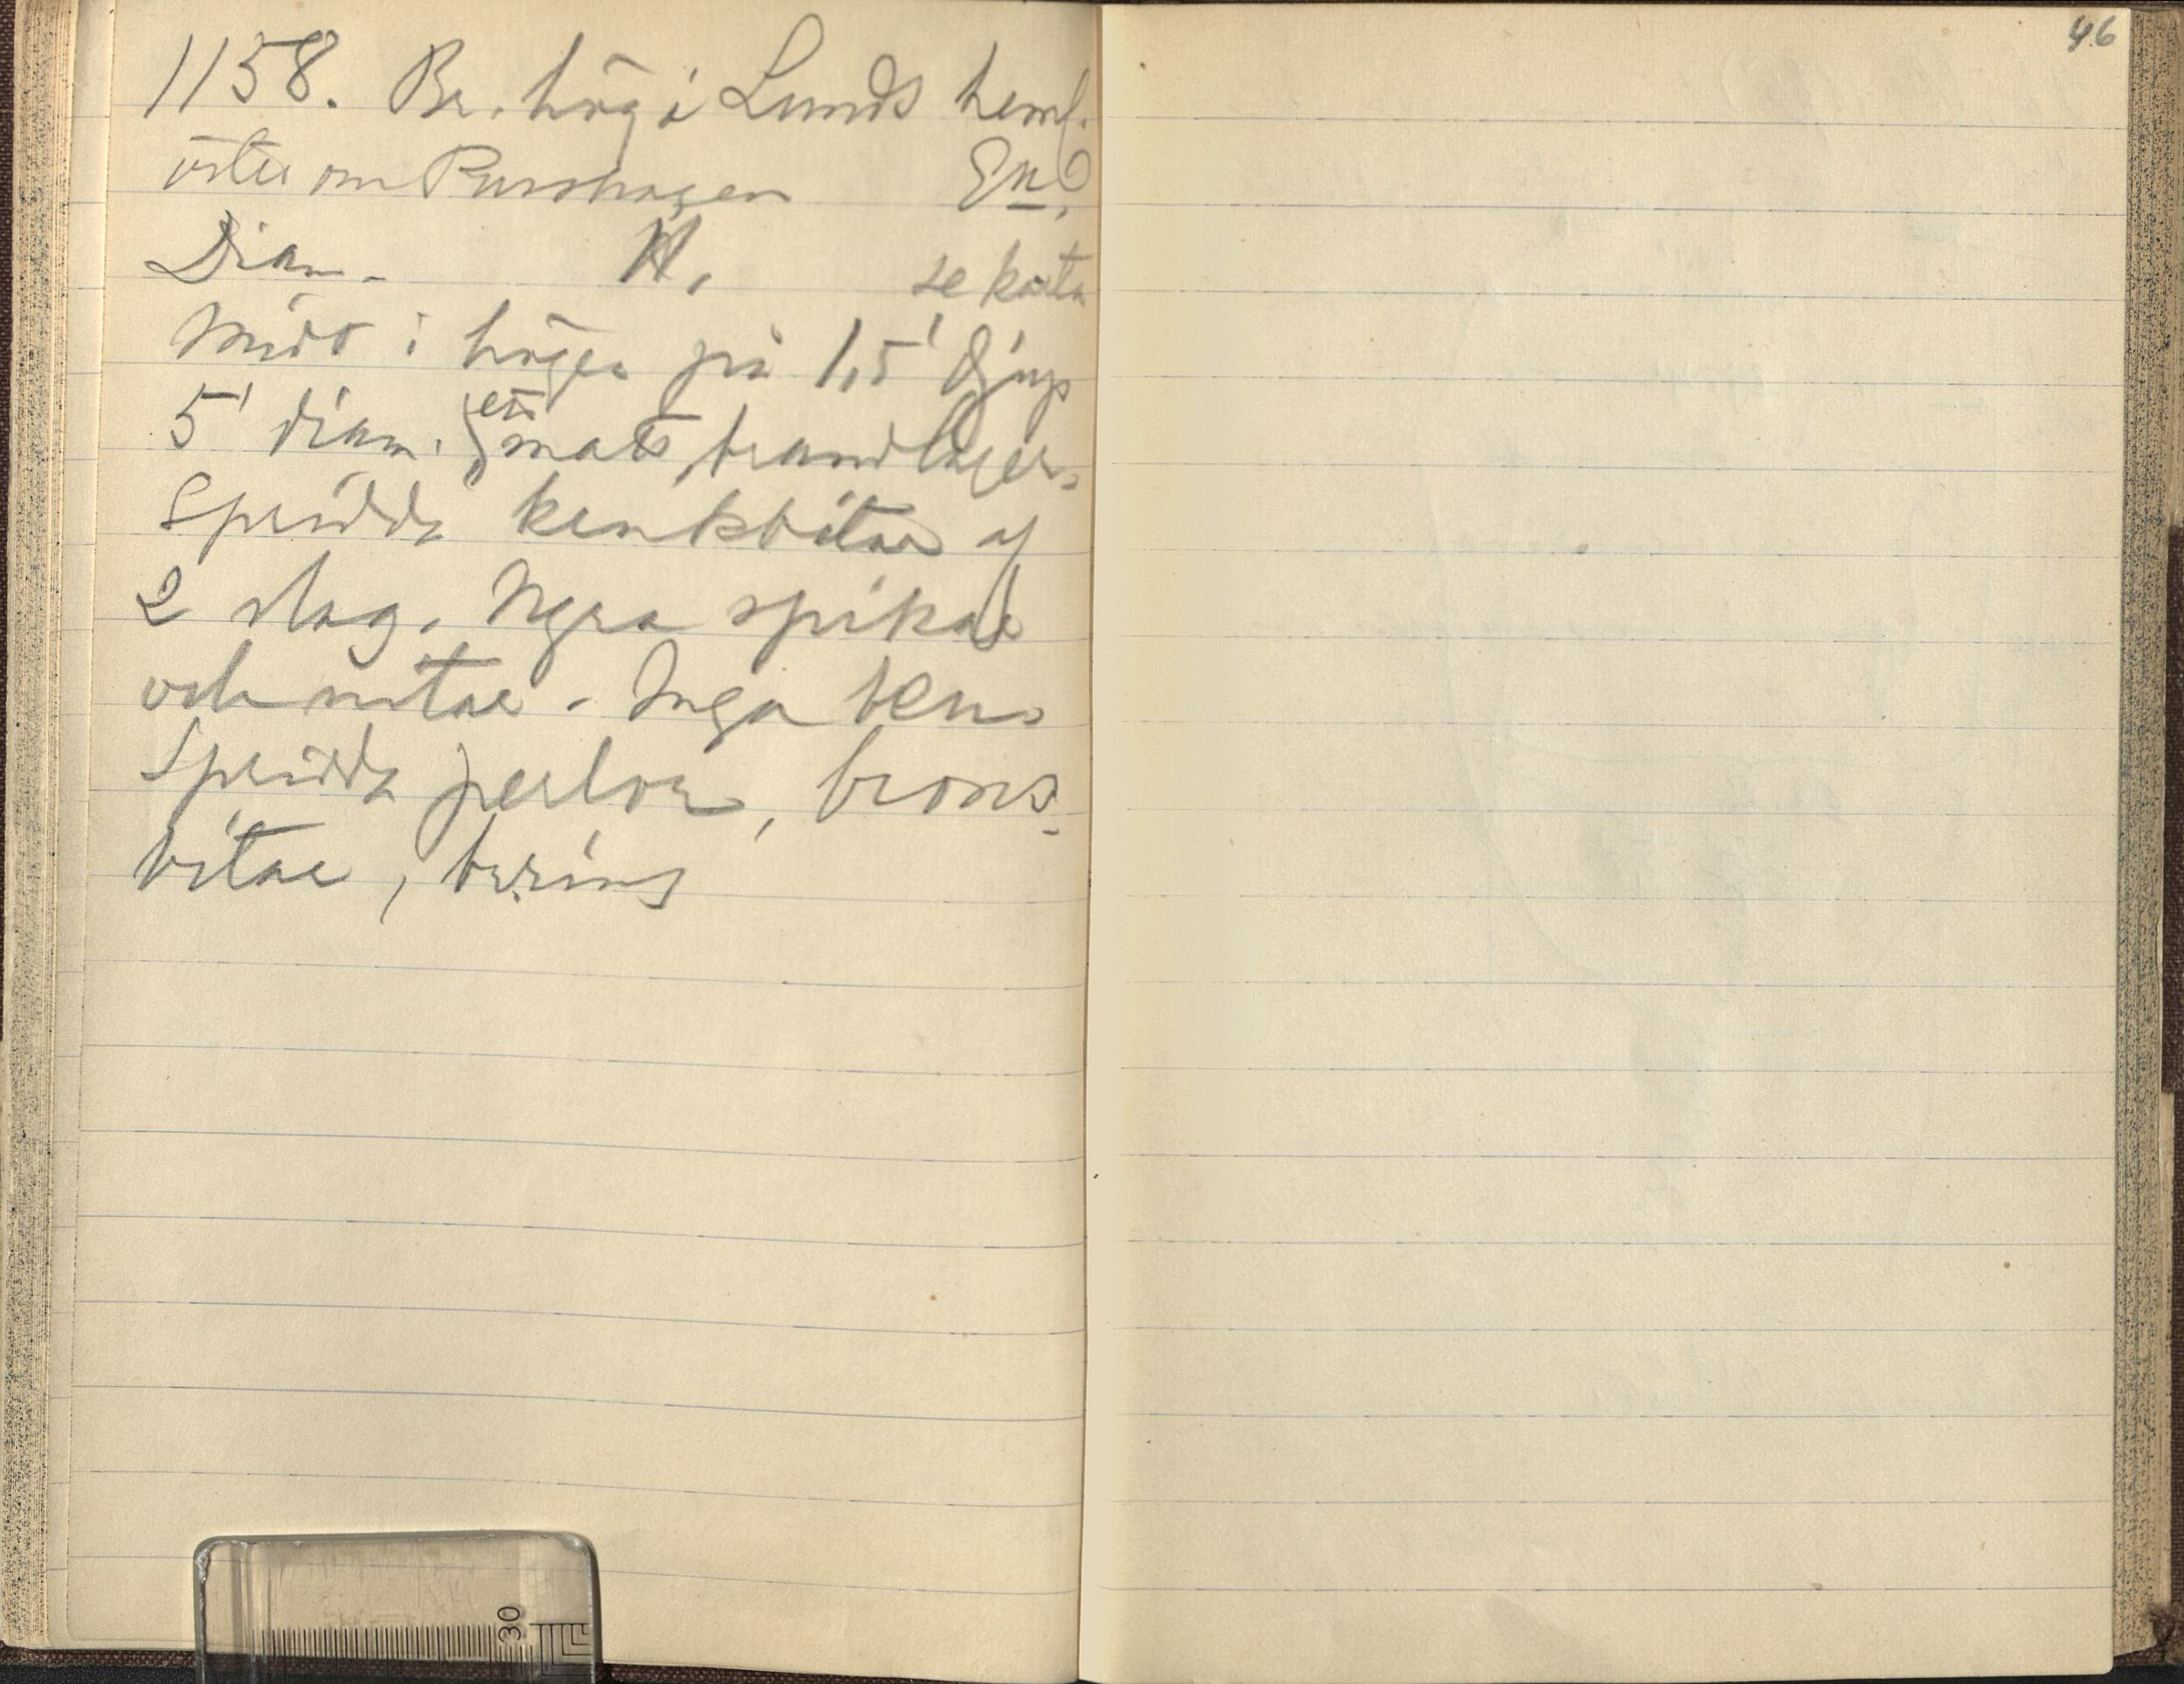 46
1158. Br. hög i Lunds heml.
öster om Purshagen En.
Diam. H. se karta
Midt i högen på 1,5' djup
5' diam. ett matt brandlager.
Spridda krukbitar af
2 slag. Ngra spikar
och nitar. Inga ben.
Spridda perlor, brons-
bitar,
30